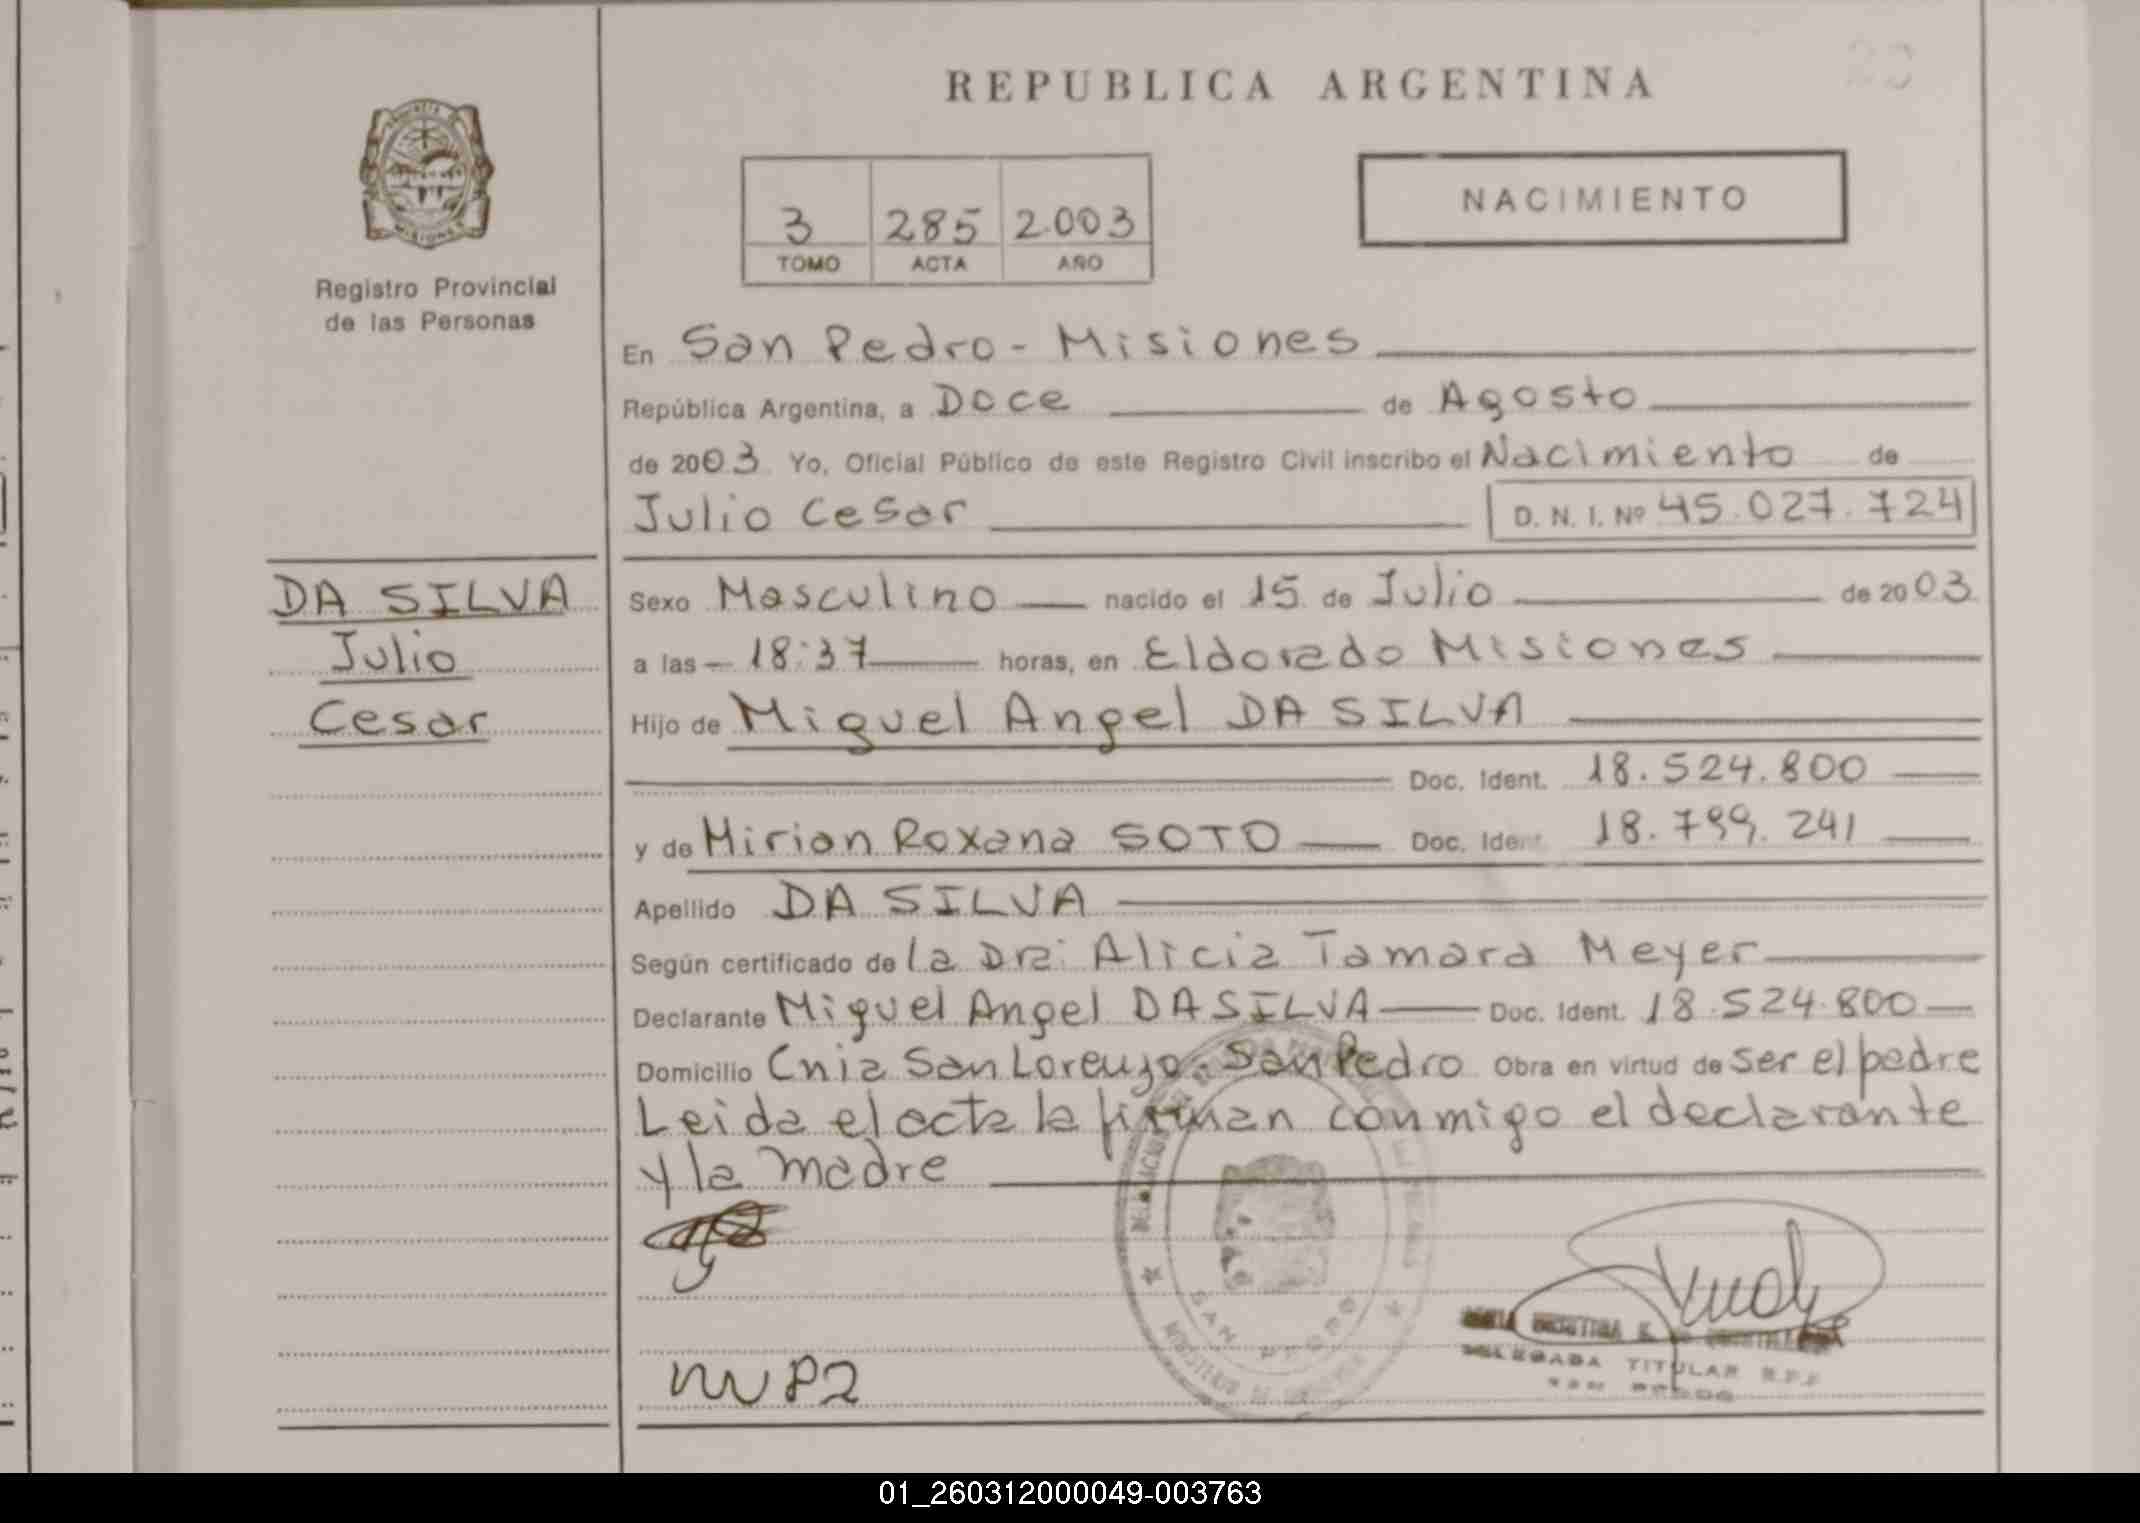 REPUBLICA ARGENTINA
NACIMIENTO
3 285 2.003
TOMO ACTA AÑO
Registro Provincial
de las Personas
En San Pedro - Misiones
República Argentina, a Doce de Agosto
de 2003. Yo, Oficial Público de este Registro Civil inscribo el Nacimiento de
Julio Cesar D. N. I. Nº 45.027.724
DA SILVA
Julio
Cesar
Sexo Masculino nacido el 15 de Julio de 2003
a las 18:37 horas, en Eldorado Misiones
Hijo de Miguel Angel DA SILVA
Doc. Ident. 18.524.800
y de Mirian Roxana SOTO Doc. Ident. 18.799.241
Apellido DA SILVA
Según certificado de la Dra: Alicia Tamara Meyer
Declarante Miguel Angel DA SILVA Doc. Ident. 18.524.800
Domicilio Cnia San Lorenzo - San Pedro Obra en virtud de ser el padre
Leida el acta la firman conmigo el declarante
y la madre
SAN PEDRO
DELEGADA TITULAR R.P.P
SAN PEDRO
01_260312000049-003763